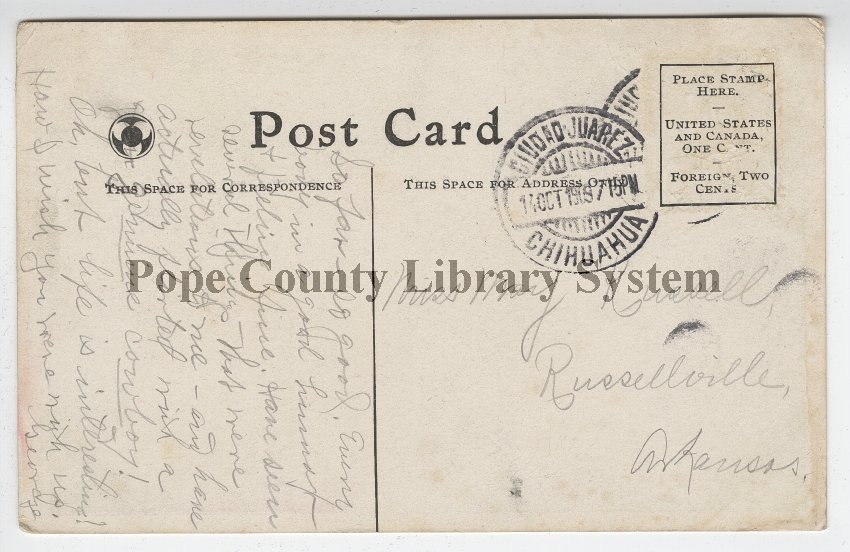 Post Card
THIS SPACE FOR CORRESPONDENCE
THIS SPACE FOR ADDRESS ONLY
PLACE STAMP
HERE.
UNITED STATES
AND CANADA,
ONE CENT.
FOREIGN, TWO
CENTS
CIUDAD JUAREZ
14 OCT 1909 7 15PM
CHIHUAHUA
Pope County Library System
So far so good. Every
body in a good humor
& feeling fine. Have seen
several things that were
revelations to me - and have
actually flirted with a
genuine cowboy!
Oh, but life is interesting!
How I wish you were with us.
George
Miss Mary Russell,
Russellville,
Arkansas.